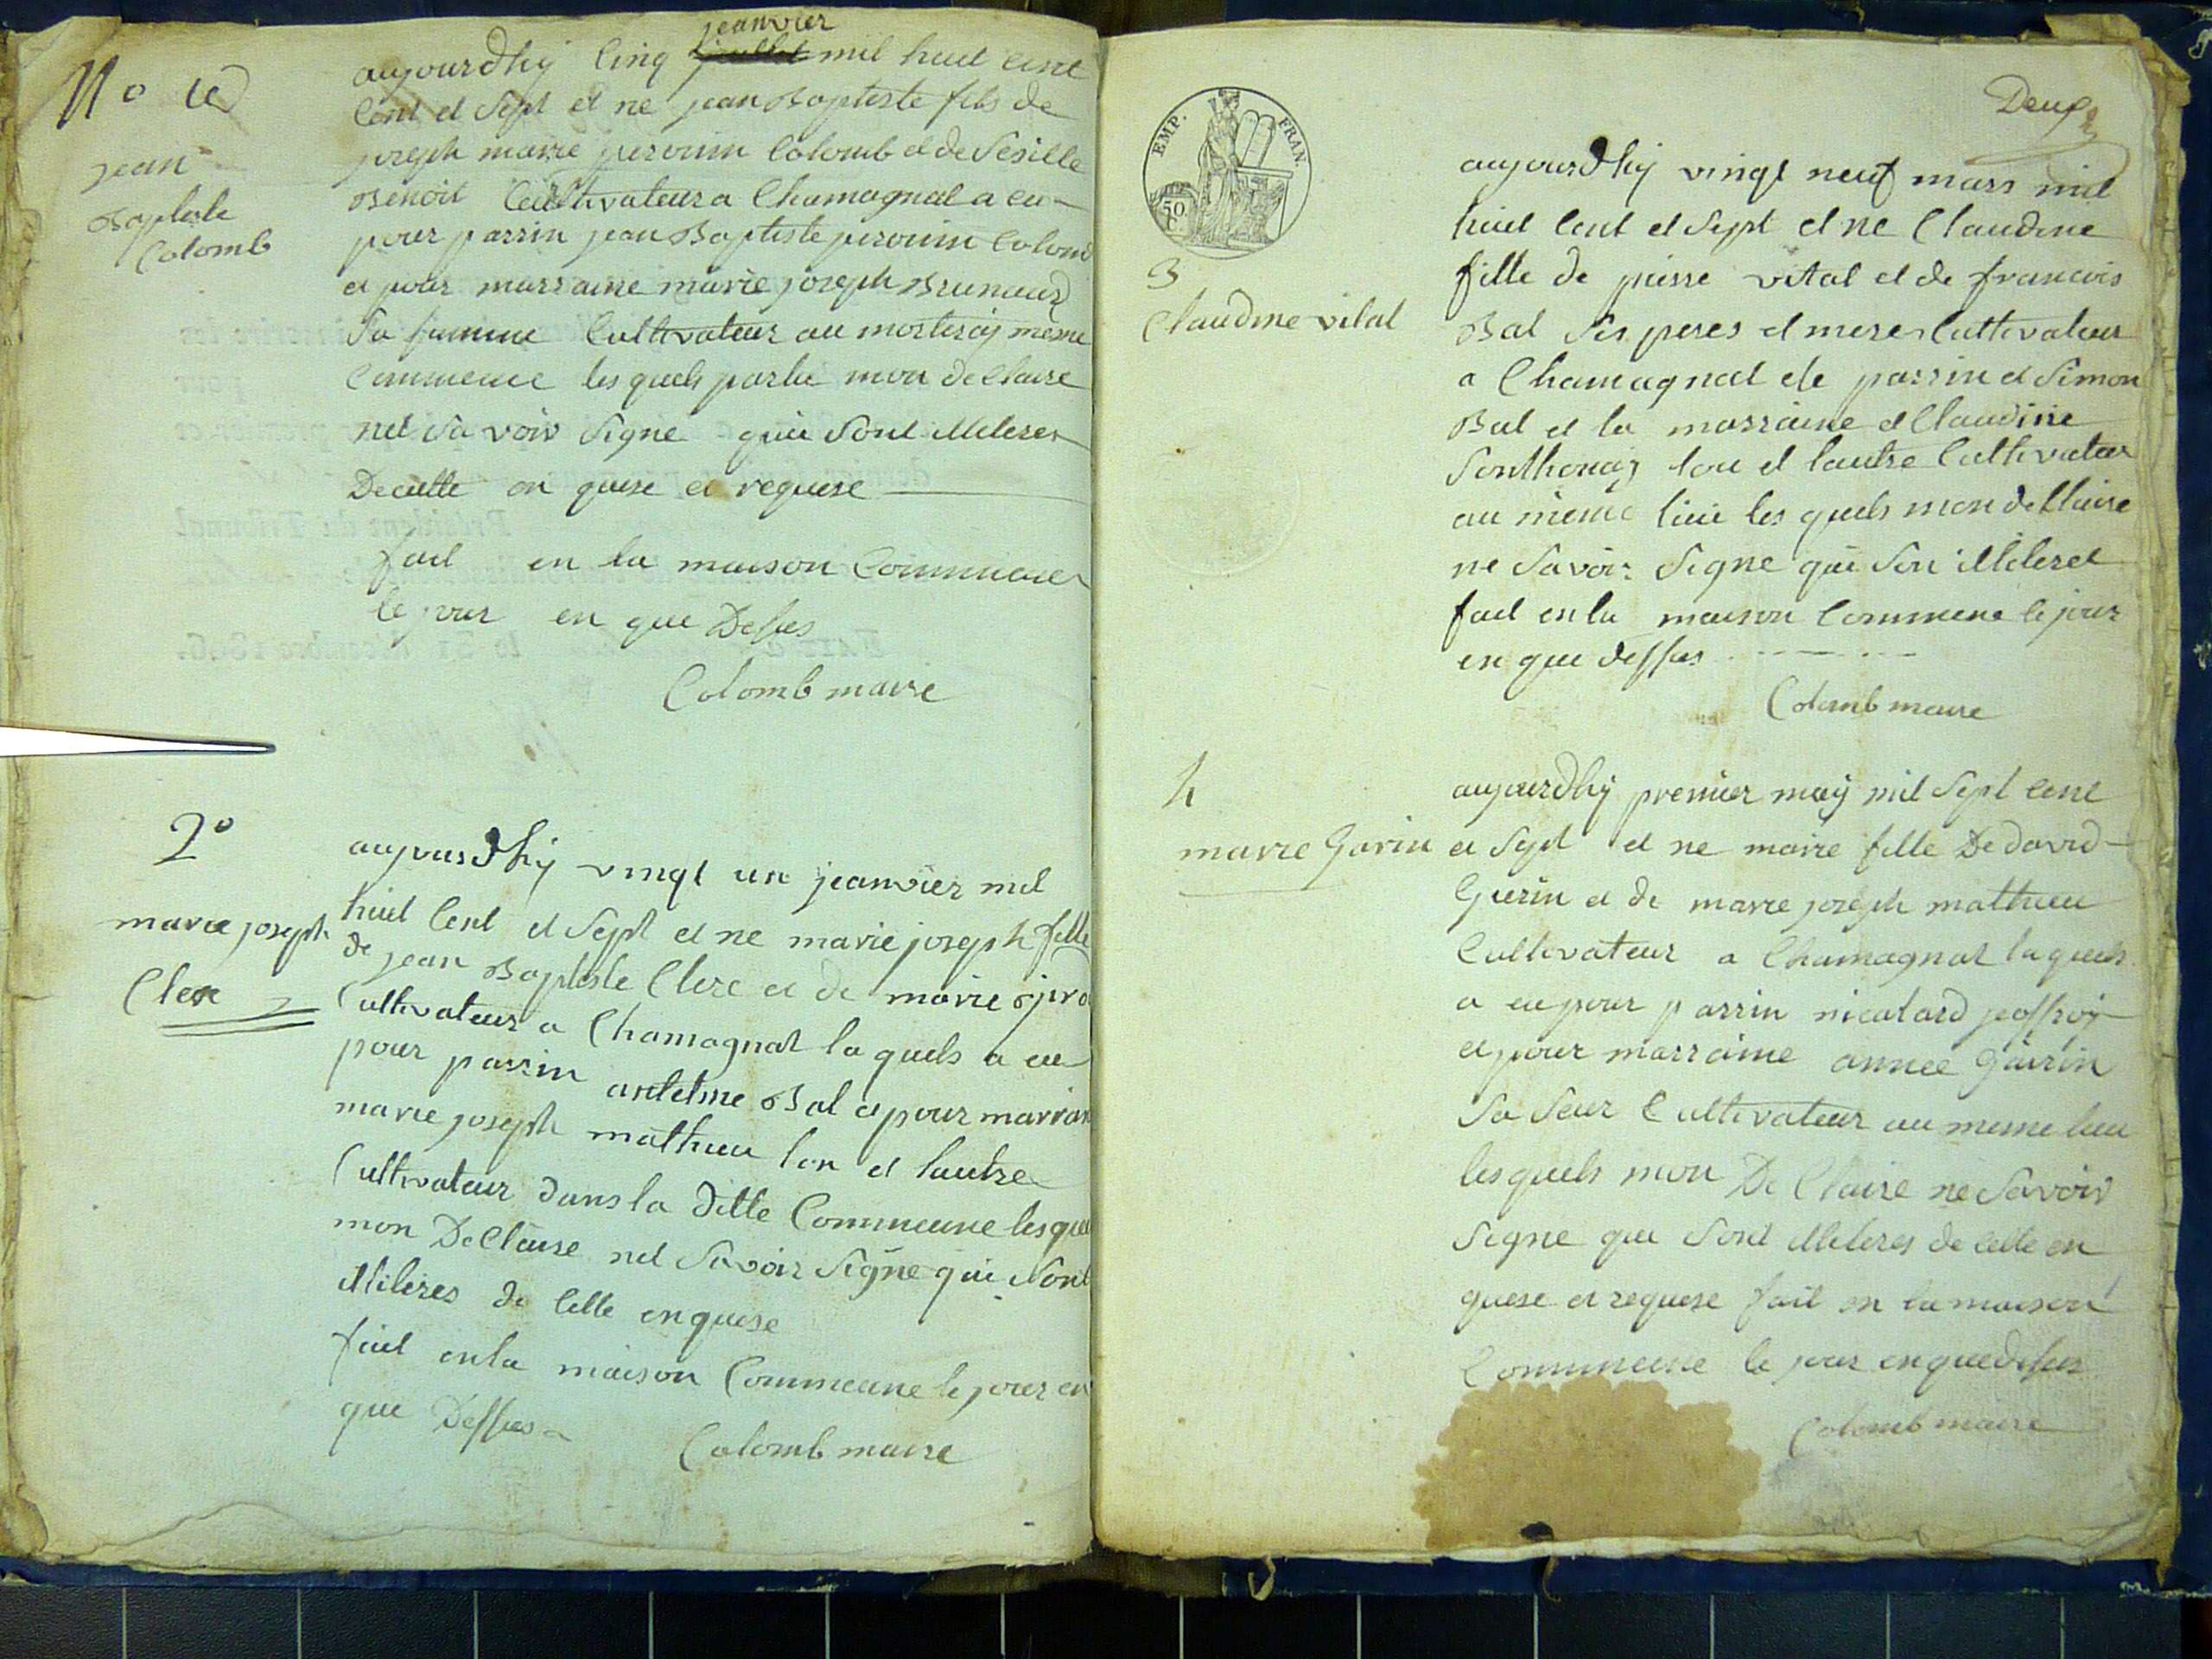 No 1er
jean
Baptiste
Colomb
jeanvier
aujourdhÿ cinq juillet mil huit cent
cent et sept et ne jean Baptiste fils de
joseph marie perouin Colomb et de Sesille
Benoit Cultivateur a Chamagnat a eu
pour parrin jean Baptiste perouin Colomb
et pour marraine marie joseph Brunaud
sa famme Cultivateur au morteroÿ meme
Commeune les quels partie mon declaire
net sa voir Signe qui Sont illiteres
Decette en quise et requise
fait en la maison Commeune
le jour en que Desus
Colomb maire
2°
marie joseph
Clerc
aujourdhÿ vingt un jeanvier mil
huit Cent et Sept et ne marie joseph fille
de jean Baptiste Clerc et de marie
Cultivateur a Chamagnat la quels a eu
pour parrin antelme Bal et pour marrain
marie joseph mathieu lon et lautre
Cultivateur dans la ditte Commeune les que
mon DeClaire net Savoir Signe qui Sont
illiteres de Cette enquise
fait en la maison Commeune le jour en
que Dessus
Colomb maire
Deux
EMP. FRAN.
50
C.
3
Claudine vital
aujourdhÿ vingt neuf mars mil
huit Cent et Sept et ne Claudine
fille de pierre vital et de francois
Bal Ses peres et meres Cultivateur
a Chamagnat ele parrin et Simon
Bal et la marraine et Claudine
Sonthonaz lou et lautre Cultivateur
au meme lieu les quels mon declaire
ne Savoir Signe qui Son illiteret
fait en la maison Commune le jour
en que dessus
Colomb maire
4
marie Guerin
aujourdhÿ premier maÿ mil Sept Cent
et Sept et ne marie fille De david
Guerin et de marie joseph mathieu
Cultivateur a Chamagnat la quels
a eu pour parrin nicalard joffroÿ
et pour marraine annee Guerin
Sa Seur Cultivateur au meme lieu
les quels mon DeClaire ne Savoir
Signe qui Sont illiteres de Cette en
quise et requise fait en la maison
Commeune le jour en que desus
Colomb maire